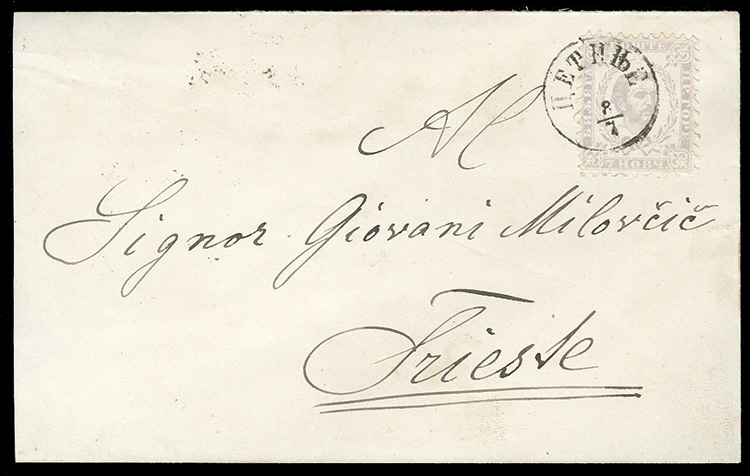 ЦЕТИЊЕ
8/7
Al
Signor Giovani Milovčič
Trieste